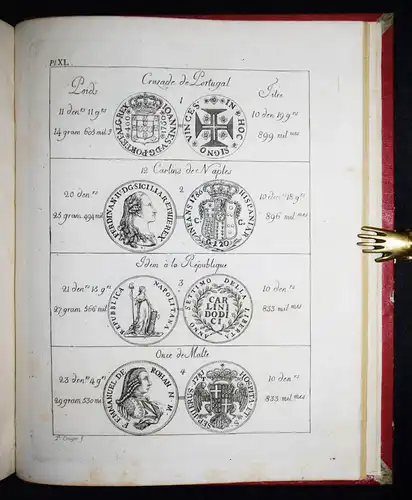 Pl XL.
Crusade de Portugal
Poids
Titre
1
11 den.rs 11 g.ns
14 gram. 608 mil.s
JOANNES V.D.G.PORT.ET.ALG.REX
IN HOC SIGNO VINCES
10 den. 19 g.ns
899 mil.mes
12 Carlins de Naples
2
20 den.rs
25 gram. 494 mil.
FERDINAN.IV.D.G.SICILIAR.ET.HIE.REX
HISPANIAR INFANS 1786
C C
G 120
10 den.rs 18 g.ns
896 mil.mes
Idem à la République
3
21 den.rs 15 g.ns
27 gram 566 mil.
REPUBBLICA NAPOLITANA
ANNO SETTIMO DELLA LIBERTA
CAR
LINI
DODI
CI
10 den.rs
833 mil.mes
Once de Malte
4
23 den.rs 4 g.ns
29 gram 530 mil.
F. EMMANUEL DE ROHAN M.M.
HOSPIT.ET S.S. SEP.HIERUS 1781
10 den.rs
833 mil.mes